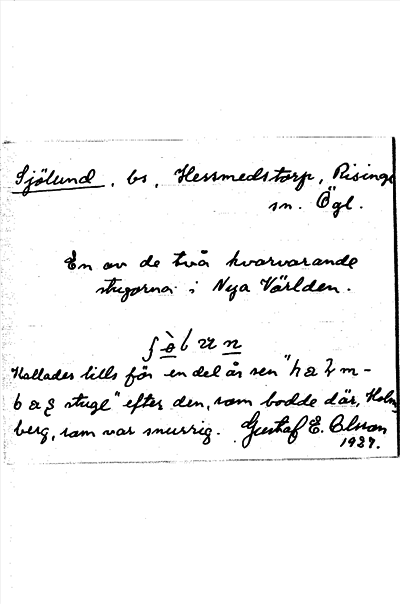 Sjölund, bs, Hessmedstorp, Risinge
sn. Ögl.
En av de två kvarvarande
stugorna i Nya Världen.
Kallades tills för en del år sen "
stugl" efter den, som bodde där, Holm-
berg, som var snurrig. Gustaf E. Olsson
1927.